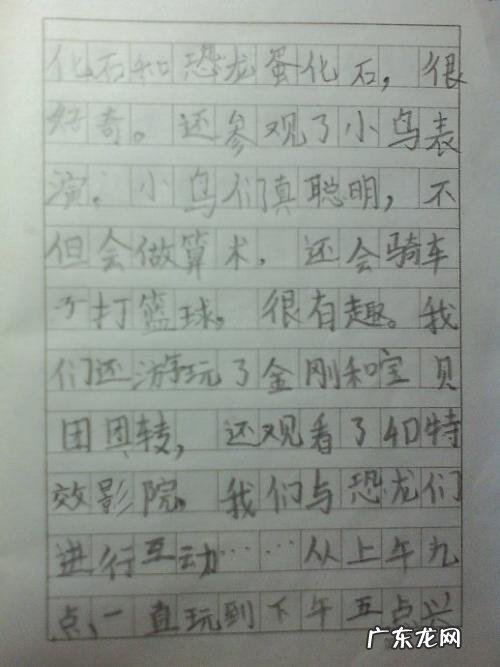 化石和恐龙蛋化石，很
好奇。还参观了小鸟表
演。小鸟们真聪明，不
但会做算术，还会骑车
子打篮球。很有趣。我
们还游玩了金刚和宝贝
团团转，还观看了4D特
效影院。我们与恐龙们
进行互动……从上午九
点、一直玩到下午五点兴
广东龙网